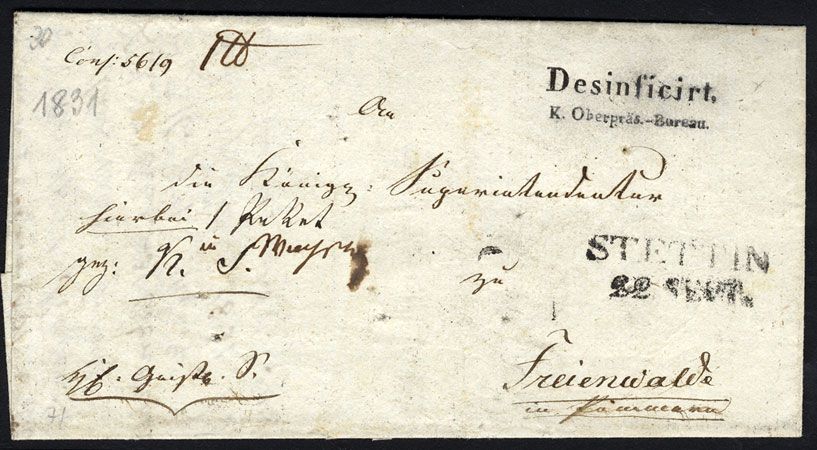 30
Cons: 5619
1831
Desinficirt.
K. Oberpräs.-Bureau.
An
die Königl: Superintendentur
hierbei 1 Peket
gez: K. in S.
zu
STETTIN
22 SEPT.
Freienwalde
in Pommern
S.
71